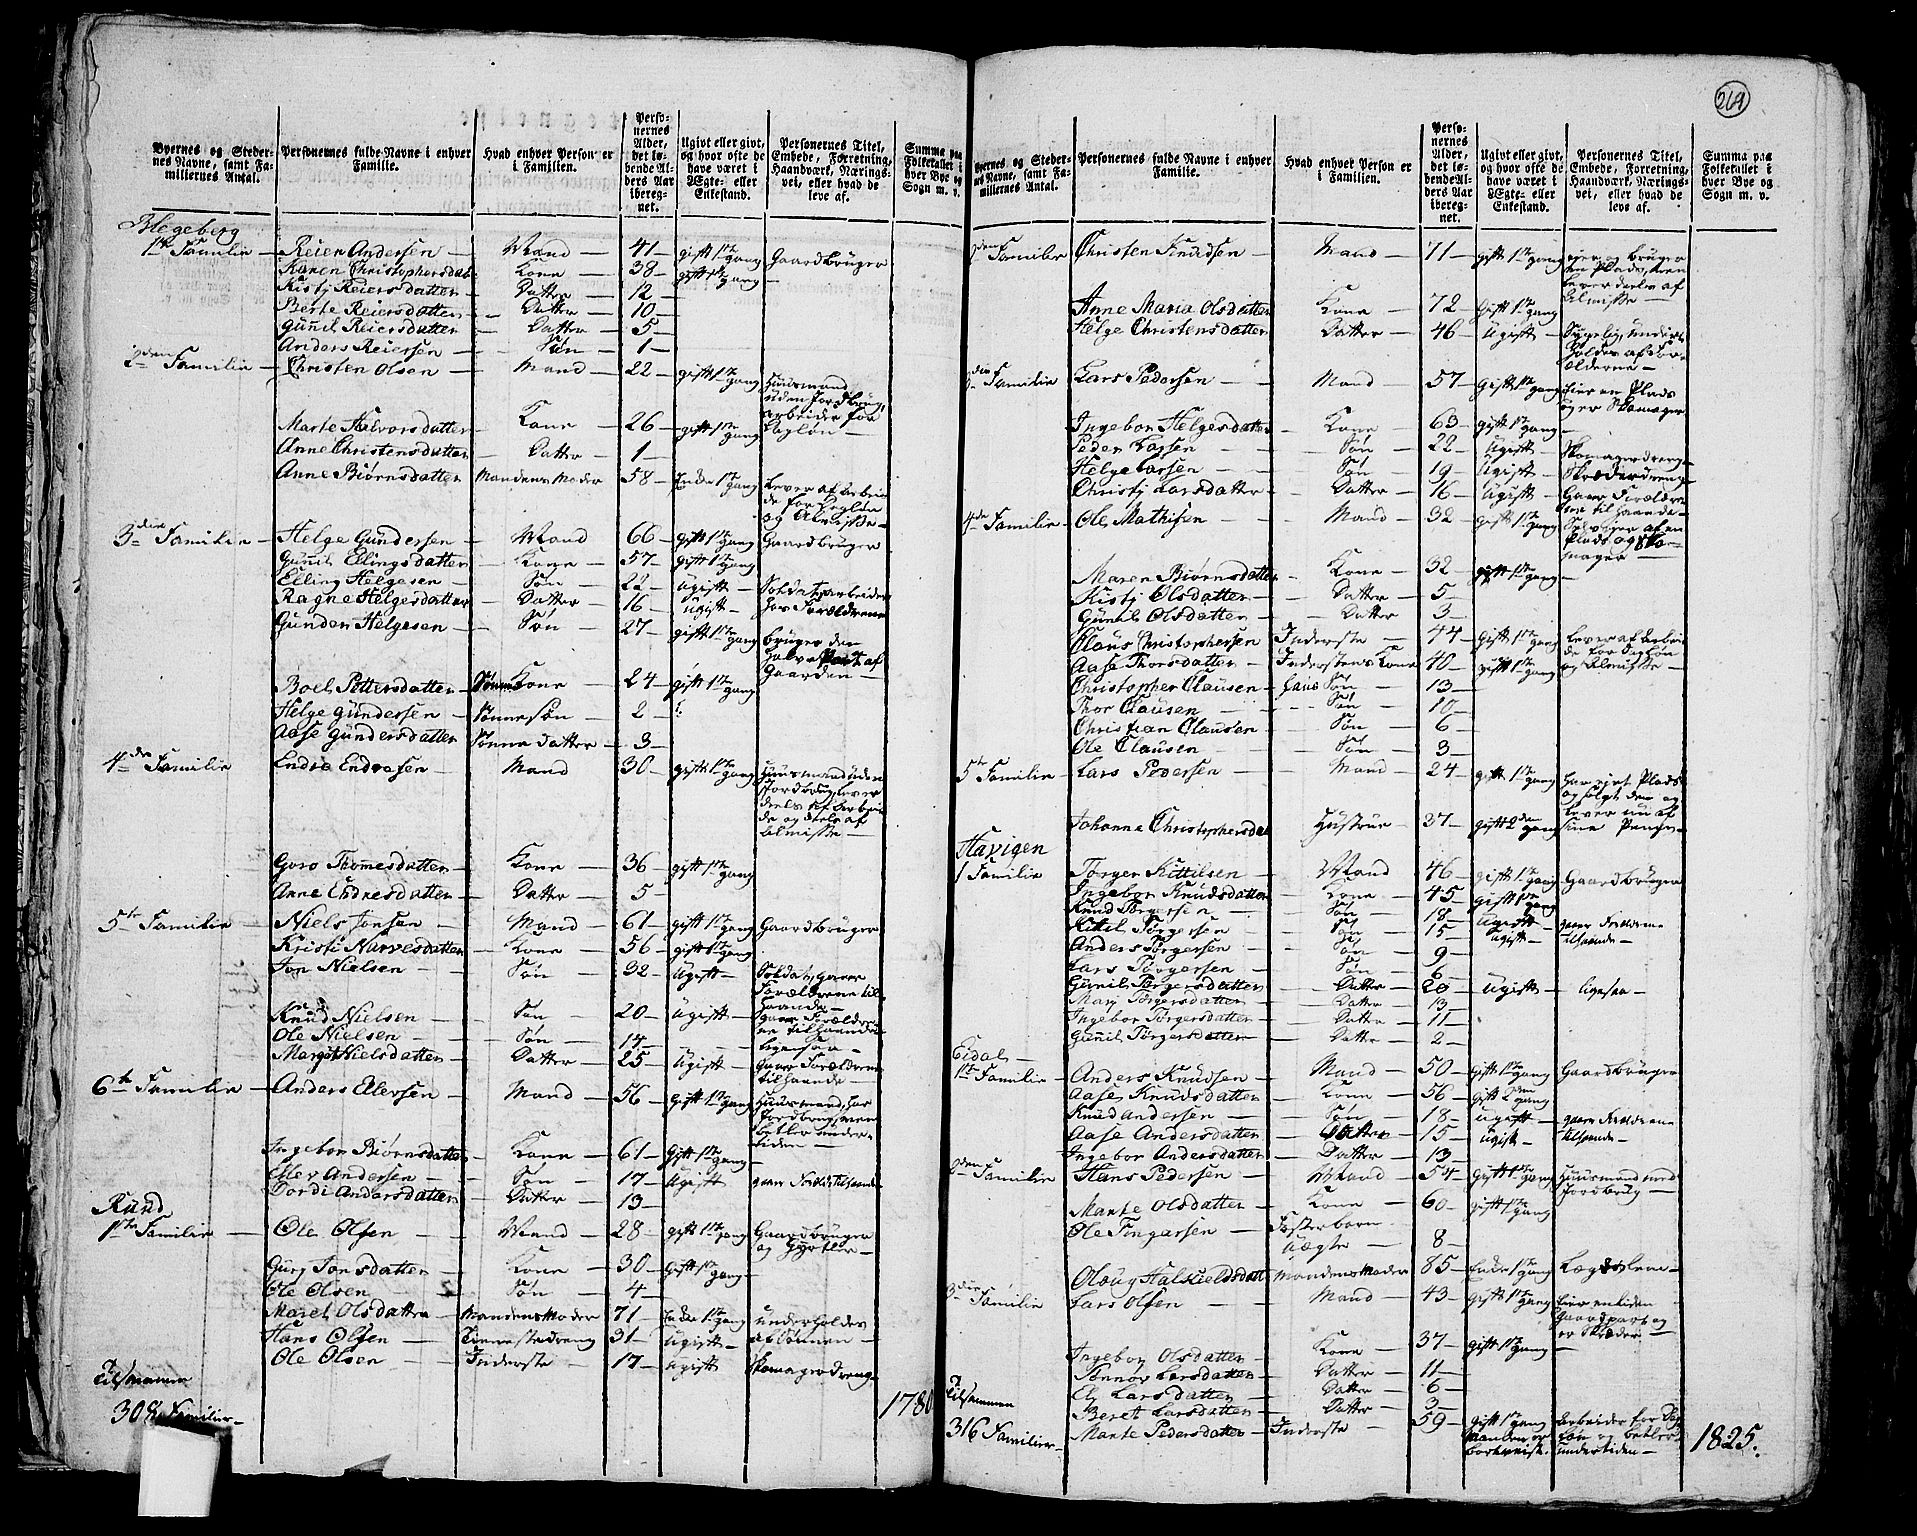 269
Byernes og Steder-
nes Navne, samt Fa-
miliernes Antal.
Personernes fulde Navne i enhver
Familie.
Hvad enhver Person er
i Familien.
Perso-
nernes
Alder,
det lø-
bende Al-
ders Aar
iberegnet.
Ugivt eller givt,
og hvor ofte de
have været i
Ægte- eller
Enkestand.
Personernes Titel,
Embede, Forretning,
Haandværk, Nærings-
vei, eller hvad de
leve af.
Summa paa
Folketallet i
hver Bye og
Sogn m. v.
1ste Familie — Reier Andersen — Mand — 41 — gift 1ste gang Gaardbruger
Karen Christophersdat Kone — 38 — gift 1ste gang
Kisti Reiersdatter — Datter — 12 —
Berte Reiersdatter — Datter — 10 —
Gunil Reiersdatter — Datter — 5 —
Anders Reiersen — Søn — 1 —
2den Familie — Christen Olsen — Mand — 22 — gift 1ste gang Huusmand
uden Jordbrug,
arbeider for
Dagløn —
Marte Halvorsdatter — Kone — 26 — gift 1ste gang
Anne Christensdatter — Datter — 1 —
Anne Biørnsdatter Mandens Moder 58 — Enke 1ste gang Lever af Arbei-
de for Dagløn
og Almisse —
3die Familie — Helge Gundersen — Mand — 66 — gift 1ste gang Gaardbruger
Gunil Ellingsdatter — Kone — 57 — gift 1ste gang
Elling Helgesen — Søn — 22 — ugift — Soldat, arbeider
Ragne Helgesdatter — Datter — 16 — ugift — hos Forældrene
Gunder Helgesen — Søn — 27 — gift 1ste gang bruger den
halve Part af
Gaarden —
Boel Pettersdatter — Sønnens Kone — 24 — gift 1ste gang
Helge Gundersen — Sønnesøn — 2 —
Aase Gundersdatter Sønnedatter — 3 —
4de Familie Endre Endresen — Mand — 30 — gift 1ste gang Huusmand uden
Jordbrug, lever
deels af Arbei-
de og deels af
Almisse —
Goro Thomesdatter — Kone — 36 — gift 1ste gang
Anne Endresdatter — Datter — 5 —
5te Familie — Niels Jonsen — Mand — 61 — gift 1ste gang Gaardbruger
Kristi Narvesdatter Kone — 56 — gift 1ste gang
Jon Nielsen — Søn — 32 — ugift — Soldat, gaaer
Forældrene til
haande —
Knud Nielsen — Søn — 20 — ugift — gaaer Forældre-
ne tilhaande
Ole Nielsen — Søn — 14 — ligesaa —
Margit Nielsdatter — Datter — 25 — ugift — gaaer Forældrene
til haande —
6te Familie — Anders Ellersen — Mand — 56 — gift 1ste gang Huusmand, har
Jordbrug, men
betler under-
tiden —
Ingebor Biørnsdatter Kone — 61 — gift 1ste gang
Eller Andersen — Søn — 17 — ugift —
Dordi Andersdatter Datter — 13 —
Rund
1ste Familie — Ole Olsen — Mand — 28 — gift 1ste gang Gaardbruger
og Gyrtler —
Gurj Jonsdatter — Kone — 30 — gift 1ste gang —
Ole Olsen — Søn — 4 —
Maret Olsdatter — Mandens Moder 71 — Enke 1ste gang underholdes
Hans Olsen — Tienestedreng 31 — ugift — af Sønnen —
Ole Olsen — Inderste — 17 — ugift Skomagerdreng
Tilsammen
308 Familier — 1780
Byernes og Steder-
nes Navne, samt Fa-
miliernes Antal.
Personernes fulde Navne i enhver
Familie.
Hvad enhver Person er
i Familien.
Perso-
nernes
Alder,
det lø-
bende Al-
ders Aar
iberegnet.
Ugivt eller givt,
og hvor ofte de
have været i
Ægte- eller
Enkestand.
Personernes Titel,
Embede, Forretning,
Haandværk, Nærings-
vei, eller hvad de
leve af.
Summa paa
Folketallet i
hver Bye og
Sogn m. v.
2den Familie Christen Knudsen — Mand — 71 — gift 1ste gang eier og bruger
en Plads, men
lever deels af
Almisse —
Anne Maria Olsdatter Kone — 72 — gift 1ste gang
Helge Christensdatter Datter — 46 — ugift — Sygelig, under-
holdes af For-
ælderne —
3die Familie Lars Pedersen — Mand — 57 — gift 1ste gang Eier en Plads
og er Skomager
Ingebor Helgesdatter Kone — 63 — gift 1ste gang —
Peder Larsen — Søn — 22 — ugift — Skomagerdreng
Helge Larsen — Søn — 19 — ugift — Skræderdreng
Christj Larsdatter — Datter — 16 — ugift — Gaaer Forældre-
ne til haande —
4de Familie — Ole Mathisen — Mand — 32 — gift 1ste gang Selveyer af en
Plads og Sko-
mager —
Maren Biørnsdatter — Kone — 32 — gift 1ste gang —
Kistj Olsdatter — Datter — 5 —
Gunil Olsdatter — Datter — 3 —
Claus Christophersen Inderste — 44 — gift 1ste gang Lever af Arbei-
de for Dagløn
og Almisse —
Aase Thorsdatter — Inderstens Kone 40 — gift 1ste gang
Christopher Clausen — Søn — 13 —
Thor Clausen — Søn — 10 —
Christian Clausen — Søn — 6 —
Ole Clausen — Søn — 3 —
5te Familie — Lars Pedersen — Mand — 24 — gift 1ste gang har ejet Plads
og solgt den og
lever nu af
sine Penge —
Johanne Christophersdat Hustrue — 37 — gift 2den gang
Havigen
1 Familie Torger Kittilsen — Mand — 46 — gift 1ste gang Gaardbruger
Ingebor Knudsdatter Kone — 45 — gift 1ste gang
Knud Torgersen — Søn — 18 — ugift — gaaer Forældrene
Kitil Torgersen — Søn — 15 — ugift — tilhaande —
Anders Torgersen — Søn — 9 —
Lars Torgersen — Søn — 6 —
Gunil Torgersdatter — Datter — 20 — ugift — ligesaa —
Marj Torgersdatter — Datter — 13 —
Ingebor Torgersdatter — Datter — 11 —
Gunil Torgersdatter — Datter — 2 —
Eidal —
1ste Familie — Anders Knudsen — Mand — 50 — gift 1ste gang Gaardbruger
Aase Knudsdatter — Kone — 56 — gift 2den gang
Knud Andersen — Søn — 18 — ugift — gaaer Forældrene
Aase Andersdatter — Datter — 15 — ugift — tilhaande —
Ingebor Andersdatter — Datter — 13 —
2den Familie — Hans Pedersen — Mand — 54 — gift 1ste gang Huusmand med
Jordbrug —
Marte Olsdatter — Kone — 60 — gift 1ste gang
Ole Fingarsen — Fosterbarn
uægte — 8 —
Olaug Halkieldsdatt Mandens Moder 85 — Enke 1ste gang Lægdslem —
3die Familie Lars Olsen — Mand — 43 — gift 1ste gang Eier en liden
Gaardpart og
er Skræder —
Ingebor Olsdatter — Kone — 37 — gift 1ste gang —
Tønnøv Larsdatter — Datter — 11 —
Larsdatter — Datter — 6 —
Beret Larsdatter — Datter — 3 —
Marte Pedersdatter Inderste — 59 — gift 1ste gang Arbeider for Dag-
Manden er løn og betler
undertiden —
Tilsammen
316 Familier — 1825.